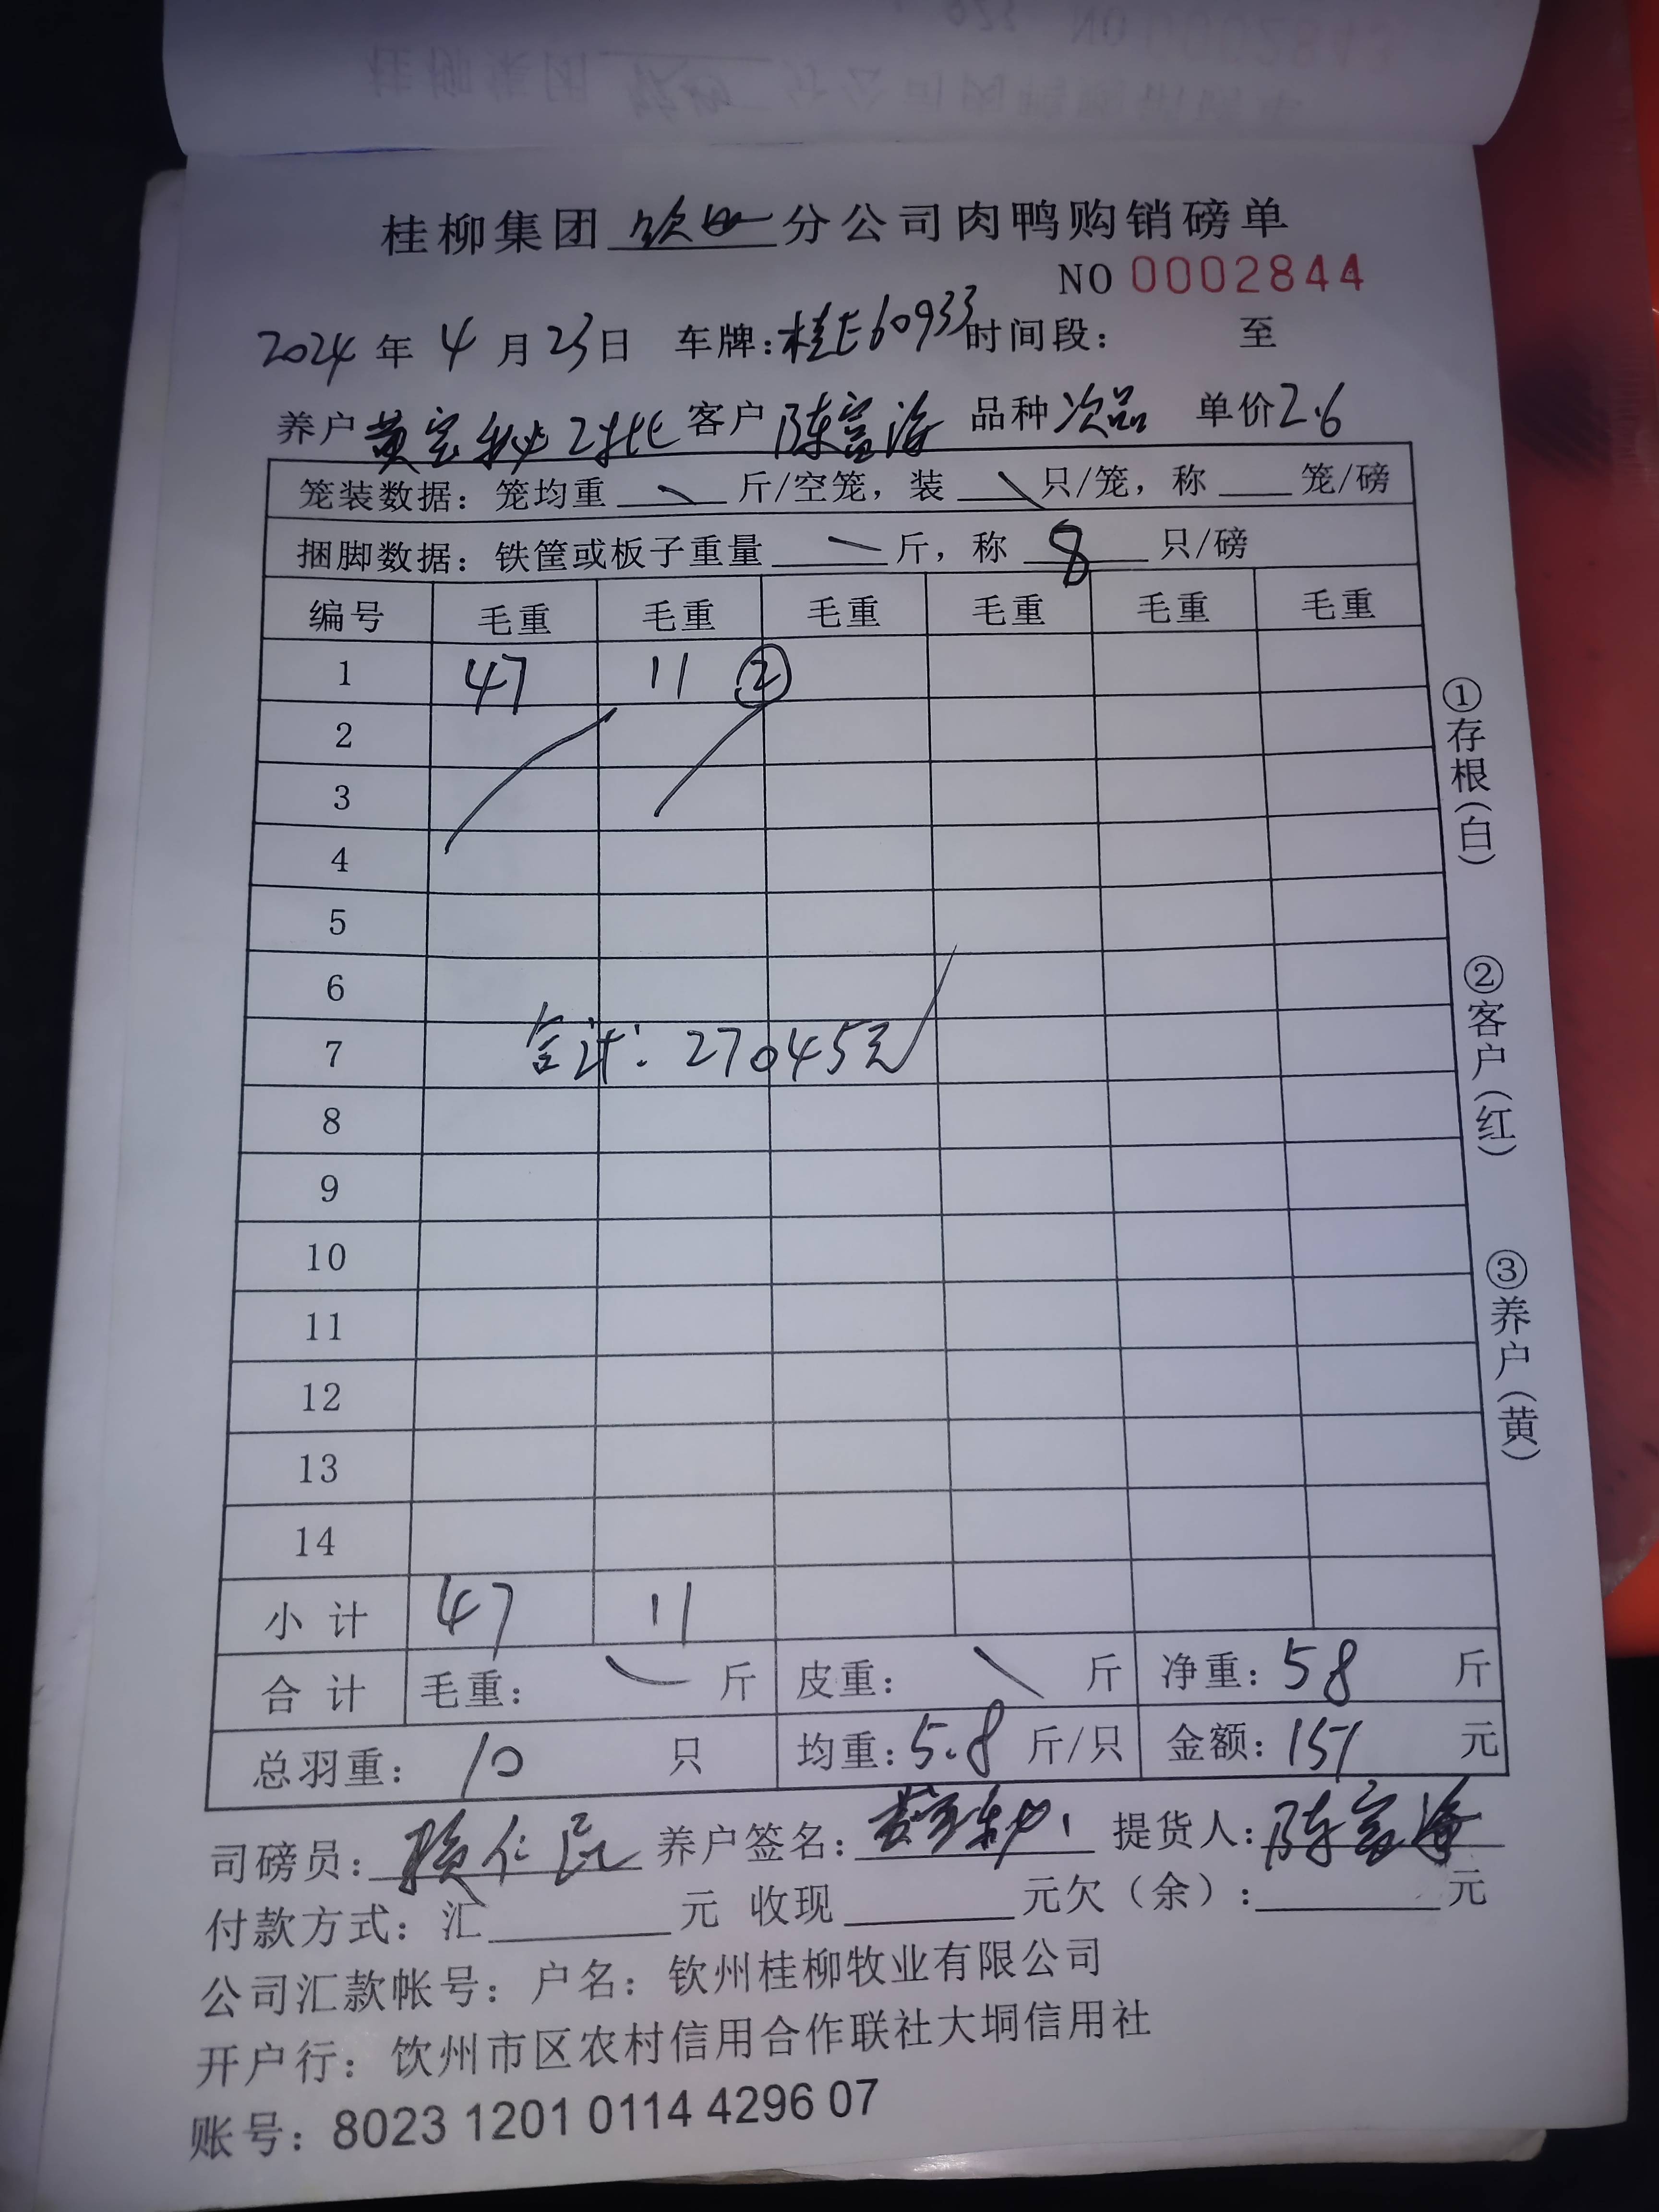 桂柳集团 钦州 分公司肉鸭购销磅单
NO 0002844
2024 年 4 月 23 日 车牌: 桂E60933 时间段: 至
养户 黄宝秘2批 客户 陈富海 品种 次品 单价 2.6
笼装数据: 笼均重 斤/空笼, 装 只/笼, 称 笼/磅
捆脚数据: 铁筐或板子重量 斤, 称 8 只/磅
编号 毛重 毛重 毛重 毛重 毛重 毛重
1 47 11 ②
2
3
4
5
6
7 合计: 27045元
8
9
10
11
12
13
14
小计 47 11
合计 毛重: 斤 皮重: 斤 净重: 58 斤
总羽重: 10 只 均重: 5.8 斤/只 金额: 151 元
司磅员: 仁 养户签名: 提货人: 陈富海
付款方式: 汇 元 收现 元欠(余): 元
公司汇款帐号: 户名: 钦州桂柳牧业有限公司
开户行: 钦州市区农村信用合作联社大垌信用社
账号: 8023 1201 0114 4296 07
①存根(白)
②客户(红)
③养户(黄)